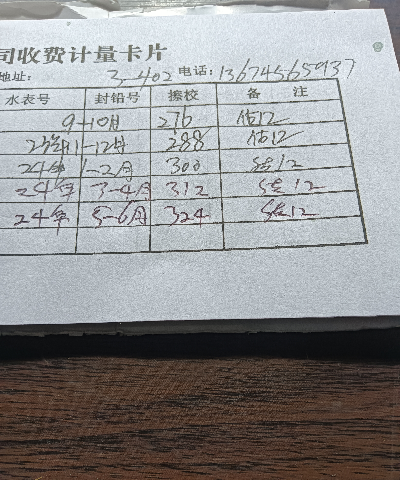 司收费计量卡片
地址: 3-402 电话: 13674565937
水表号 封铅号 擦校 备 注
9-10月 276 估12
23年11-12月 288 估12
24年 1-2月 300 估12
24年 3-4月 312 估12
24年 5-6月 324 估12